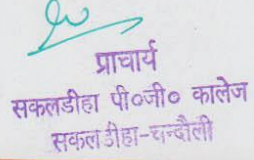 प्राचार्य
सकलडीहा पी०जी० कालेज
सकलडीहा-चन्दौली